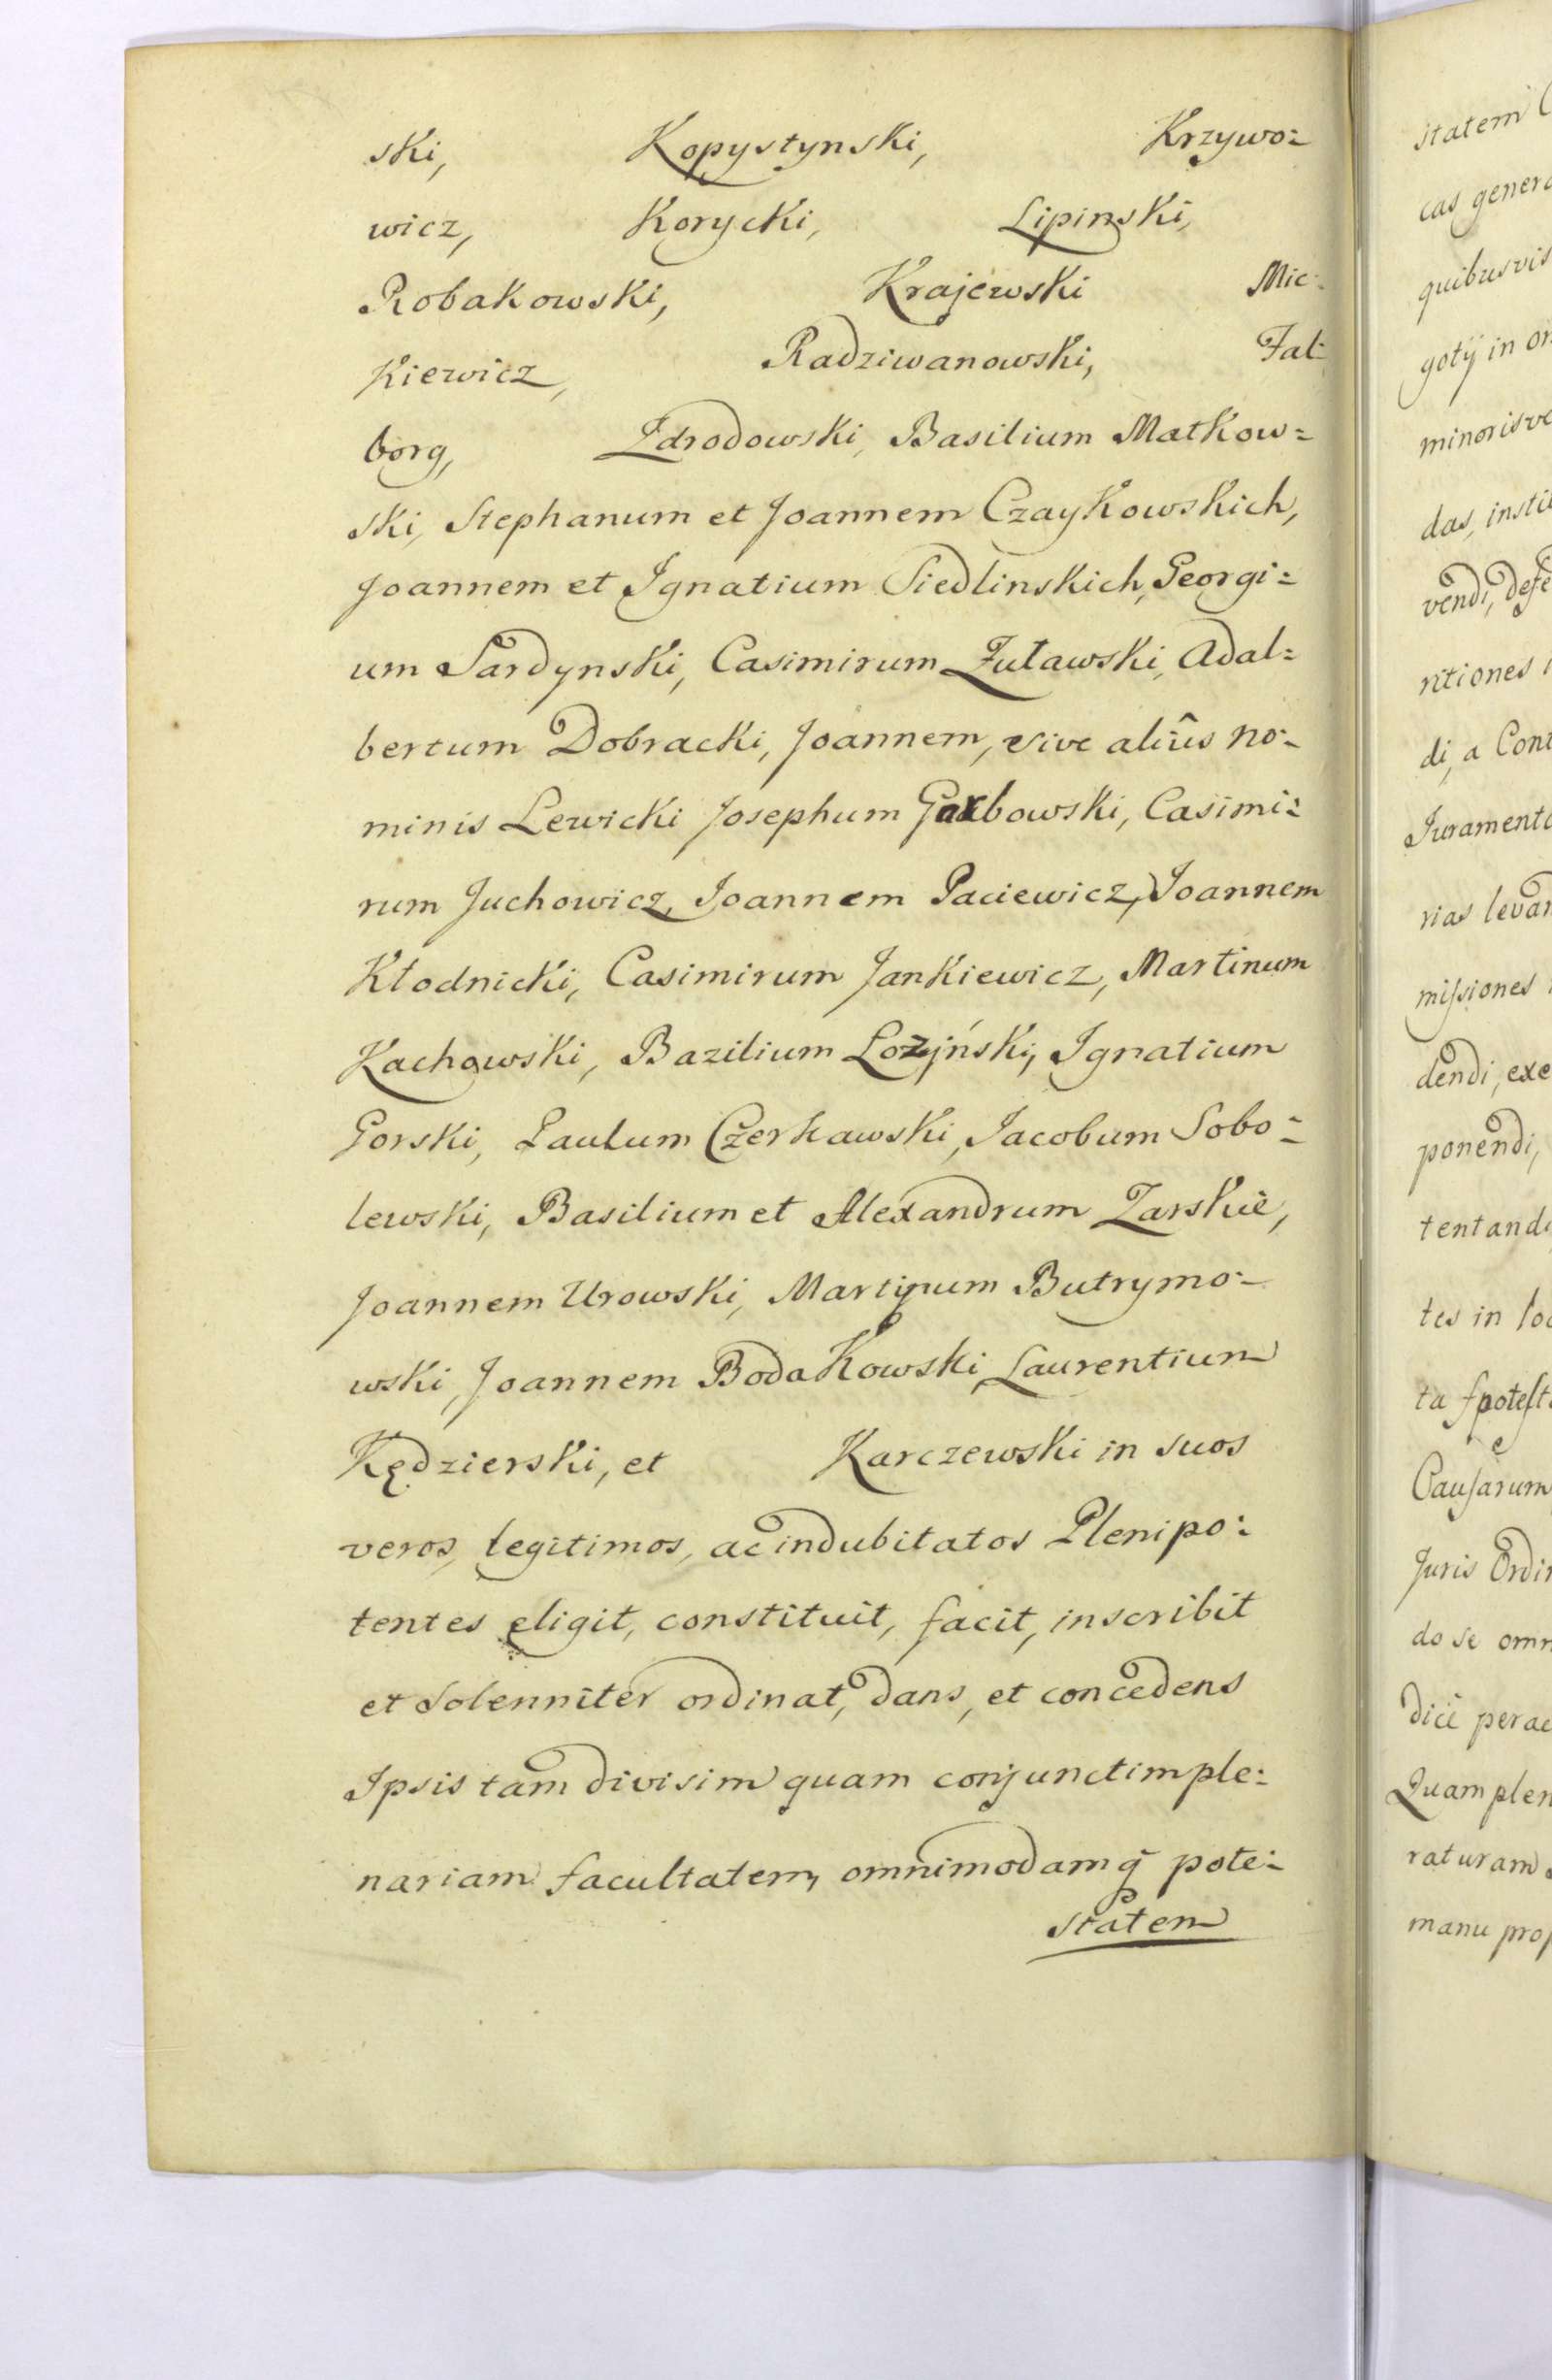 ski, Kopystynski, Krzywo=
wicz, Korycki, Lipinski,
Robakowski, Krajewski Mic=
kiewicz, Radziwanowski, Fal=
borg, Zdrodowski, Basilium Matkow=
ski, Stephanum et Joannem Czaykowskich,
Joannem et Ignatium Siedlinskich, Georgi=
um Sardynski, Casimirum Żuławski, Adal=
bertum Dobracki, Joannem, sive aliûs no=
minis Lewicki Josephum Garbowski, Casimi=
rum Juchowicz, Joannem Paciewicz, Joannem
Kłodnicki, Casimirum Jankiewicz, Martinum
Kachowski, Bazilium Łozÿnski, Ignatium
Gorski, Paulum Czerkawski, Jacobum Sobo=
lewski, Basilium et Alexandrum Zarskie,
Joannem Urowski, Martinum Butrymo=
wski, Joannem Bodakowski, Laurentium
Kędzierski, et Karczewski in suos
veros, legitimos, ac indubitatos Plenipo=
tentes eligit, constituit, facit, inscribit
et Solenniter ordinat, dans, et concedens
Ipsis tam divisim quam conjunctim ple=
nariam facultatem, omnimodamq̃ pote=
statem
statem
cas genera
quibusvis
gotÿ in
minorisve
das, insti
vendi, defe
ritiones
di, a Cont
Juramento
rias levan
missiones
dendi, exe
ponendi,
tentandi
tes in loc
ta
Causarum
Juris Ordin
do se omn
dicê perac
Quam plen
raturam
manu prop